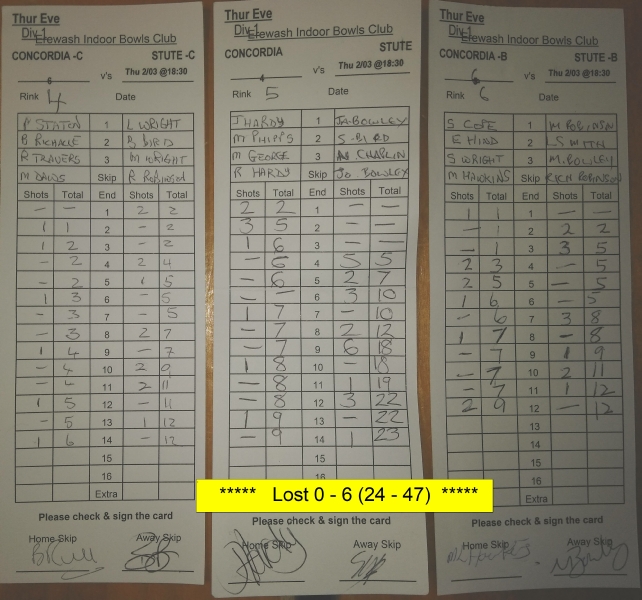 Thur Eve
Div 1
Erewash Indoor Bowls Club
CONCORDIA -C STUTE -C
v's Thu 2/03 @18:30
Rink 4 Date
P STATEN 1 L WRIGHT
2 B BIRD
R TRAVERS 3 M WRIGHT
M DAWS Skip R ROBINSON
Shots Total End Shots Total
— — 1 2 2
1 1 2 – 2
1 2 3 – 2
– 2 4 2 4
– 2 5 1 5
1 3 6 – 5
– 3 7 – 5
– 3 8 2 7
1 4 9 – 7
– 4 10 2 9
– 4 11 2 11
1 5 12 – 11
– 5 13 1 12
1 6 14 – 12
15
16
Extra
Please check & sign the card
Home Skip Away Skip
Thur Eve
Div 1
Erewash Indoor Bowls Club
CONCORDIA STUTE
4 v's Thu 2/03 @18:30
Rink 5 Date
J HARDY 1 JA. BOWLEY
M PHIPPS 2 S. BIRD
M GEORGE 3 CHAPLIN
R HARDY Skip JO. BOWLEY
Shots Total End Shots Total
2 2 1 — —
3 5 2 — —
1 6 3 — —
– 6 4 5 5
– 6 5 2 7
– – 6 3 10
1 7 7 – 10
– 7 8 2 12
– 7 9 6 18
1 8 10 – 18
– 8 11 1 19
– 8 12 3 22
1 9 13 – 22
– 9 14 1 23
15
16
Please check & sign the card
Home Skip Away Skip
Thur Eve
Div 1
Erewash Indoor Bowls Club
CONCORDIA -B STUTE -B
6 v's Thu 2/03 @18:30
Rink 6 Date
S COPE 1 M ROBINSON
E HIND 2 L SMITH
S WRIGHT 3 M. BOWLEY
M HAWKINS Skip RICH ROBINSON
Shots Total End Shots Total
1 1 1 — —
– 1 2 2 2
– 1 3 3 5
2 3 4 – 5
2 5 5 – 5
1 6 6 – 5
– 6 7 3 8
1 7 8 – 8
– 7 9 1 9
– 7 10 2 11
– 7 11 1 12
2 9 12 – 12
13
14
15
16
Extra
Please check & sign the card
Home Skip Away Skip
***** Lost 0 - 6 (24 - 47) *****